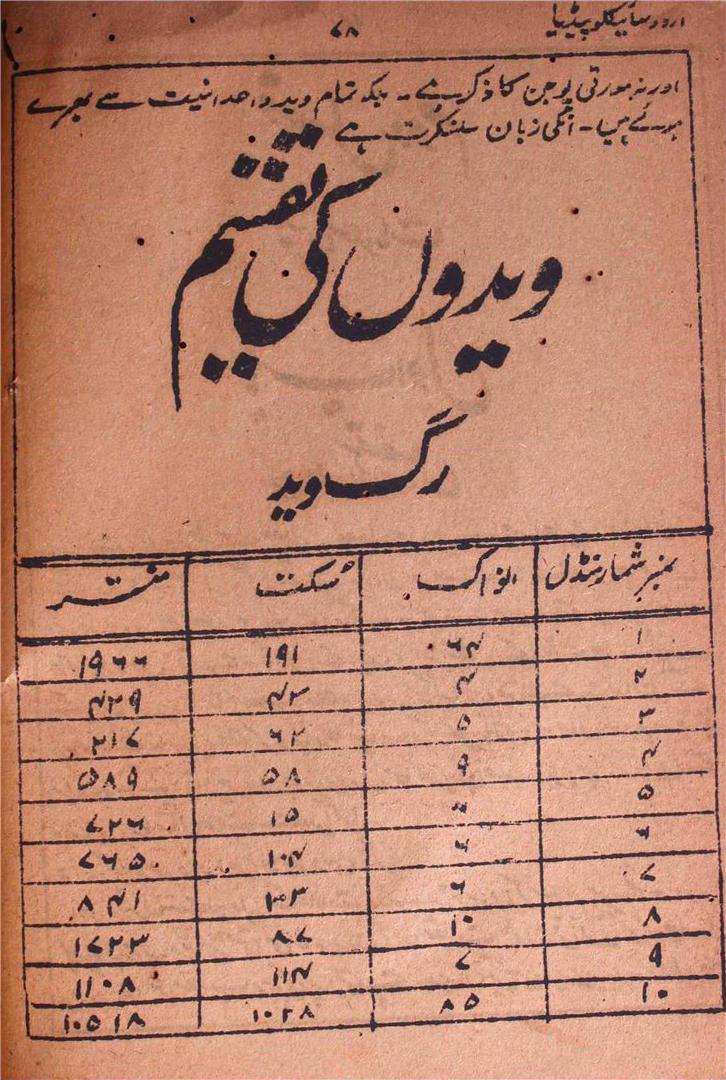 اردو سائیکلو پیڈیا ۷۸
اور نہ مورتی پوجن کا ذکر ہے۔ بلکہ تمام وید واحدانیت سے بھرے
ہوئے ہیں۔ انکی زبان سنسکرت ہے
ویدوں کی تقسیم
رگ وید
نمبر شمار منڈل انواک سکت منتر
۱ ۶۴ ۱۹۱ ۱۹۶۶
۲ ۴ ۴۳ ۴۲۹
۳ ۵ ۶۲ ۲۱۷
۴ ۹ ۵۸ ۵۸۹
۵ ۶ ۱۵ ۷۲۶
۶ ۶ ۱۰۴ ۷۶۵
۷ ۶ ۳۳ ۸۴۱
۸ ۱۰ ۸۷ ۱۷۲۳
۹ ۷ ۱۱۴ ۱۱۰۸
۱۰ ۸۵ ۱۰۲۸ ۱۰۵۱۸